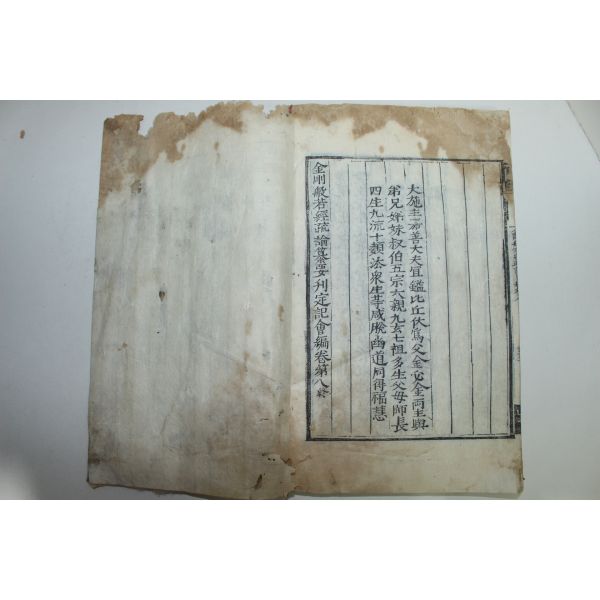 大施主嘉善大夫宜鑑比丘伏爲父金 金兩主與
弟兄姊妹叔伯五宗六親九玄七祖多生父母師長
四生九流十類法衆生等咸脫幽道同得福慧
金剛般若經疏論纂要刊定記會編卷第八終